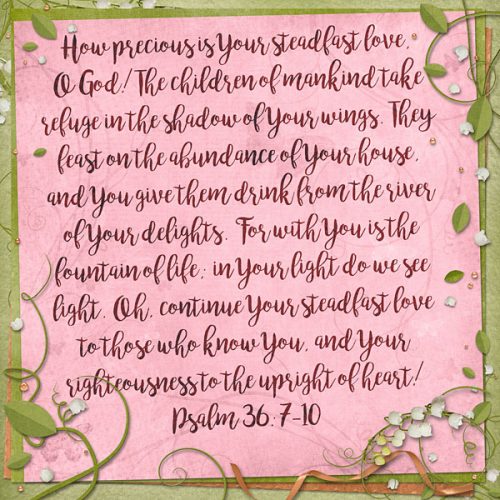 How precious is Your steadfast love,
O God! The children of mankind take
refuge in the shadow of Your wings. They
feast on the abundance of Your house,
and You give them drink from the river
of Your delights. For with You is the
fountain of life; in Your light do we see
light. Oh, continue Your steadfast love
to those who know You, and Your
righteousness to the upright of heart!
Psalm 36:7-10